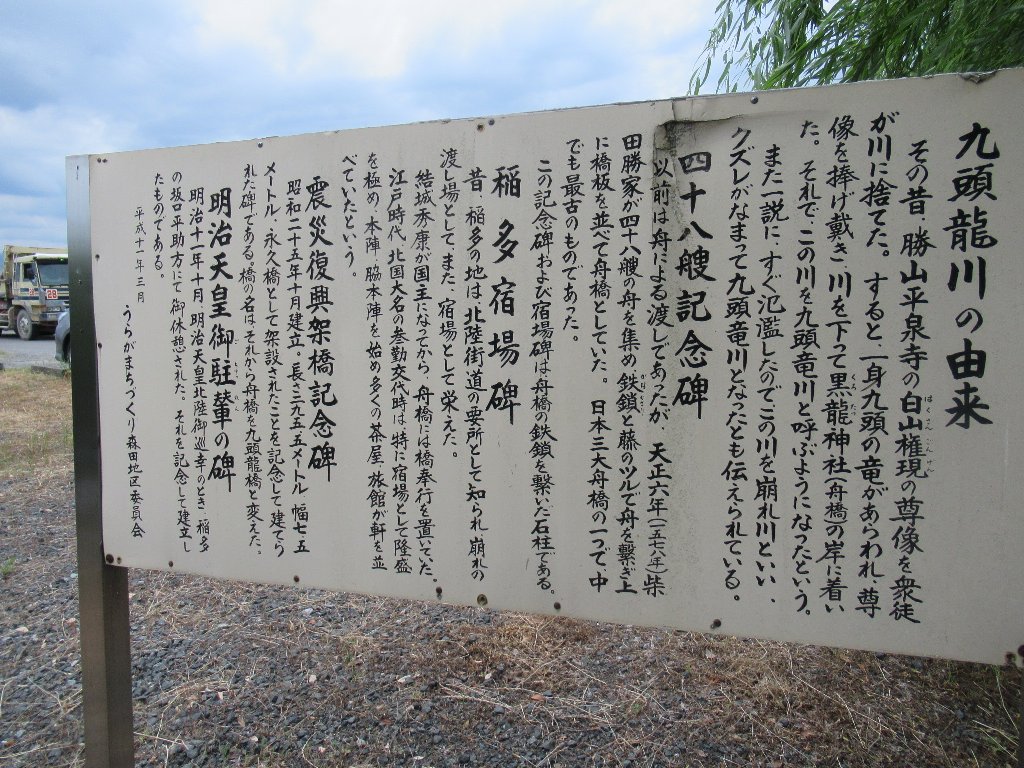 九頭龍川の由来
その昔、勝山平泉寺の白山権現の尊像を衆徒
が川に捨てた。すると、一身九頭の竜があらわれ、尊
像を捧げ戴き、川を下って黒龍神社(舟橋)の岸に着い
た。それで、この川を九頭竜川と呼ぶようになったという。
また一説に、すぐ氾濫したのでこの川を崩れ川といい、
クズレがなまって九頭竜川となったとも伝えられている。
四十八艘記念碑
以前は舟による渡しであったが、天正六年(一五七八年)柴
田勝家が四十八艘の舟を集め、鉄鎖と藤のツルで舟を繋ぎ上
に橋板を並べて舟橋としていた。日本三大舟橋の一つで、中
でも最古のものであった。
この記念碑、および宿場碑は舟橋の鉄鎖を繋いだ石柱である。
稲多宿場碑
昔、稲多の地は、北陸街道の要所として知られ、崩れの
渡し場として、また、宿場として栄えた。
結城秀康が国主になってから、舟橋には橋奉行を置いていた。
江戸時代、北国大名の参勤交代時は、特に宿場として隆盛
を極め、本陣、脇本陣を始め多くの茶屋、旅館が軒を並
べていたという。
震災復興架橋記念碑
昭和二十五年十月建立。長さ二九五・五メートル、幅七・五
メートル・永久橋として架設されたことを記念して建てら
れた碑である。橋の名はそれから舟橋を九頭龍橋と変えた。
明治天皇御駐輦の碑
明治十一年十月、明治天皇北陸御巡幸のとき、稲多
の坂平助方にて、御休憩された。それを記念して建立し
たものである。
平成十一年三月
うらがまちづくり森田地区委員会
28